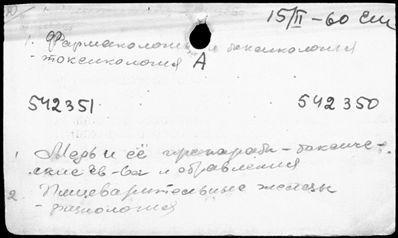 15/II - 60 сш
1. Фармакология и токсикология
- токсикология А
542351 542350
1 Медь и её препараты - токсиче-
ские св-ва и отравления
2 Пищеварительные железы
- физиология